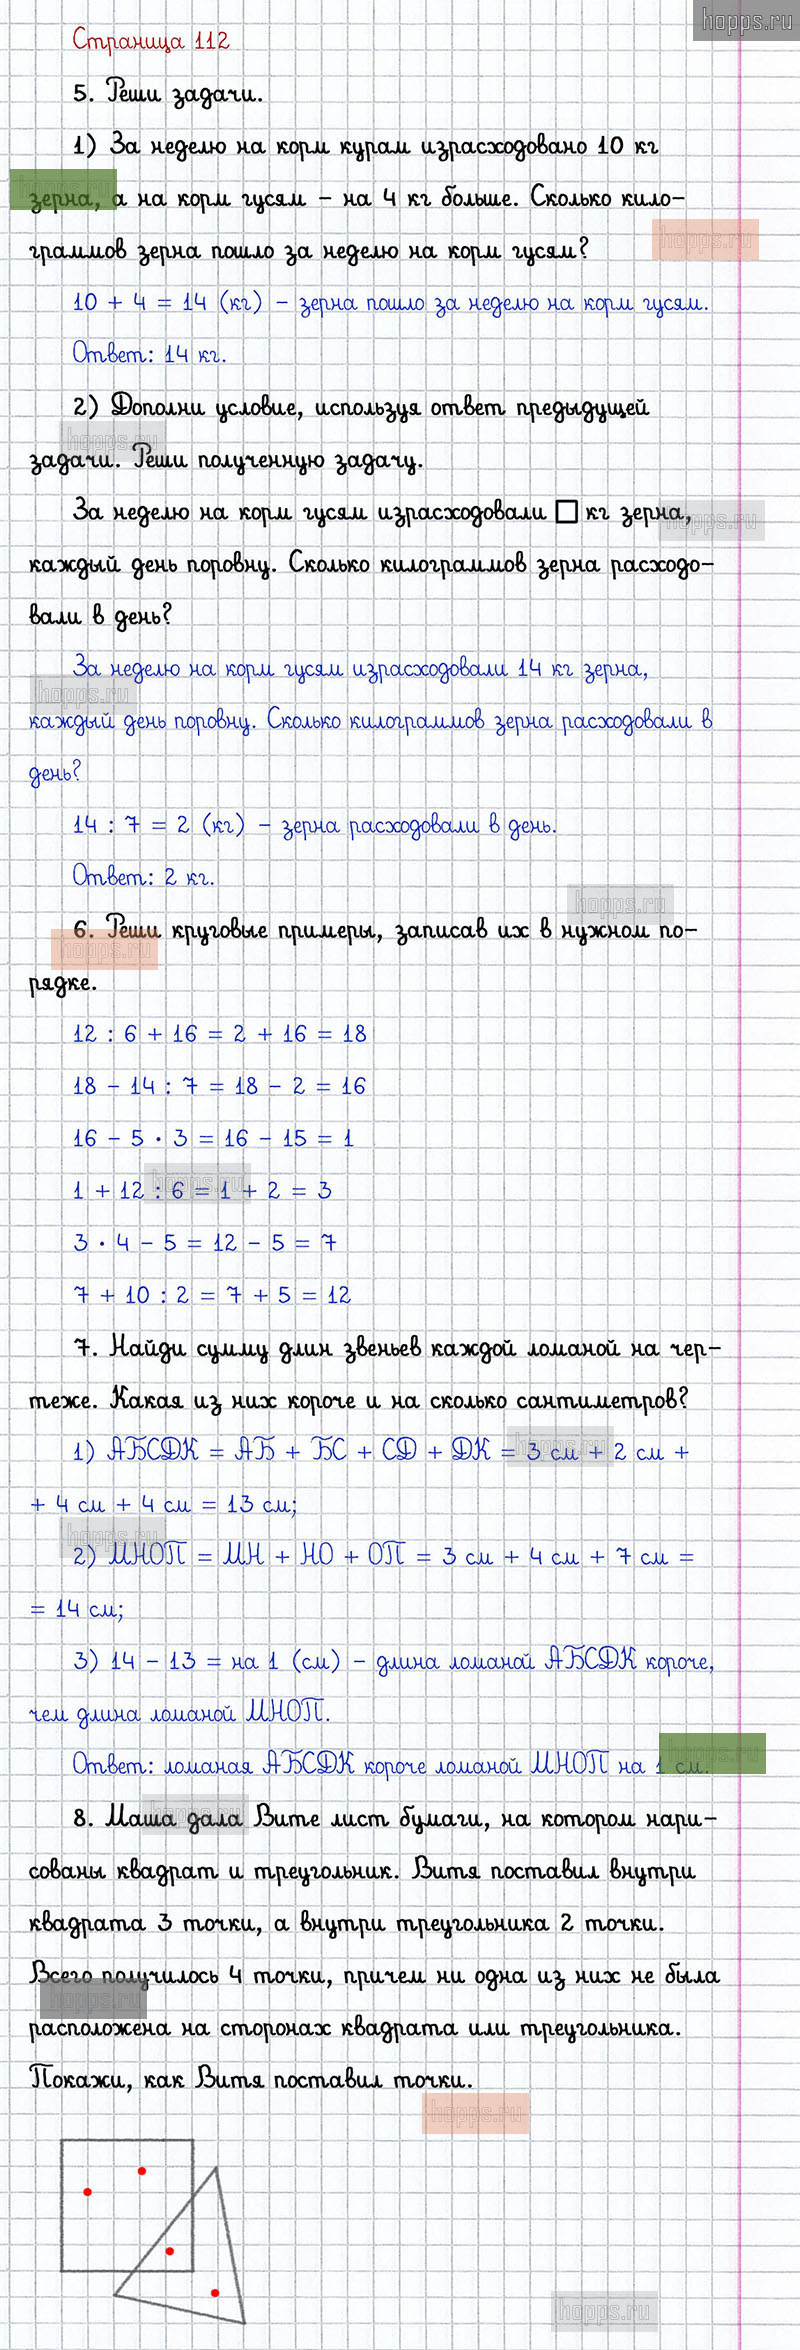 hopps.ru
Страница 112
5. Реши задачи.
1) За неделю на корм курам израсходовано 10 кг
зерна, а на корм гусям – на 4 кг больше. Сколько кило-
граммов зерна пошло за неделю на корм гусям?
10 + 4 = 14 (кг) – зерна пошло за неделю на корм гусям.
Ответ: 14 кг.
2) Дополни условие, используя ответ предыдущей
задачи. Реши полученную задачу.
За неделю на корм гусям израсходовали □ кг зерна,
каждый день поровну. Сколько килограммов зерна расходо-
вали в день?
За неделю на корм гусям израсходовали 14 кг зерна,
каждый день поровну. Сколько килограммов зерна расходовали в
день?
14 : 7 = 2 (кг) – зерна расходовали в день.
Ответ: 2 кг.
6. Реши круговые примеры, записав их в нужном по-
рядке.
12 : 6 + 16 = 2 + 16 = 18
18 – 14 : 7 = 18 – 2 = 16
16 – 5 · 3 = 16 – 15 = 1
1 + 12 : 6 = 1 + 2 = 3
3 · 4 – 5 = 12 – 5 = 7
7 + 10 : 2 = 7 + 5 = 12
7. Найди сумму длин звеньев каждой ломаной на чер-
теже. Какая из них короче и на сколько сантиметров?
1) АБСДК = АБ + БС + СД + ДК = 3 см + 2 см +
+ 4 см + 4 см = 13 см;
2) МНОП = МН + НО + ОП = 3 см + 4 см + 7 см =
= 14 см;
3) 14 – 13 = на 1 (см) – длина ломаной АБСДК короче,
чем длина ломаной МНОП.
Ответ: ломаная АБСДК короче ломаной МНОП на 1 см.
8. Маша дала Вите лист бумаги, на котором нари-
сованы квадрат и треугольник. Витя поставил внутри
квадрата 3 точки, а внутри треугольника 2 точки.
Всего получилось 4 точки, причем ни одна из них не была
расположена на сторонах квадрата или треугольника.
Покажи, как Витя поставил точки.
hopps.ru
hopps.ru